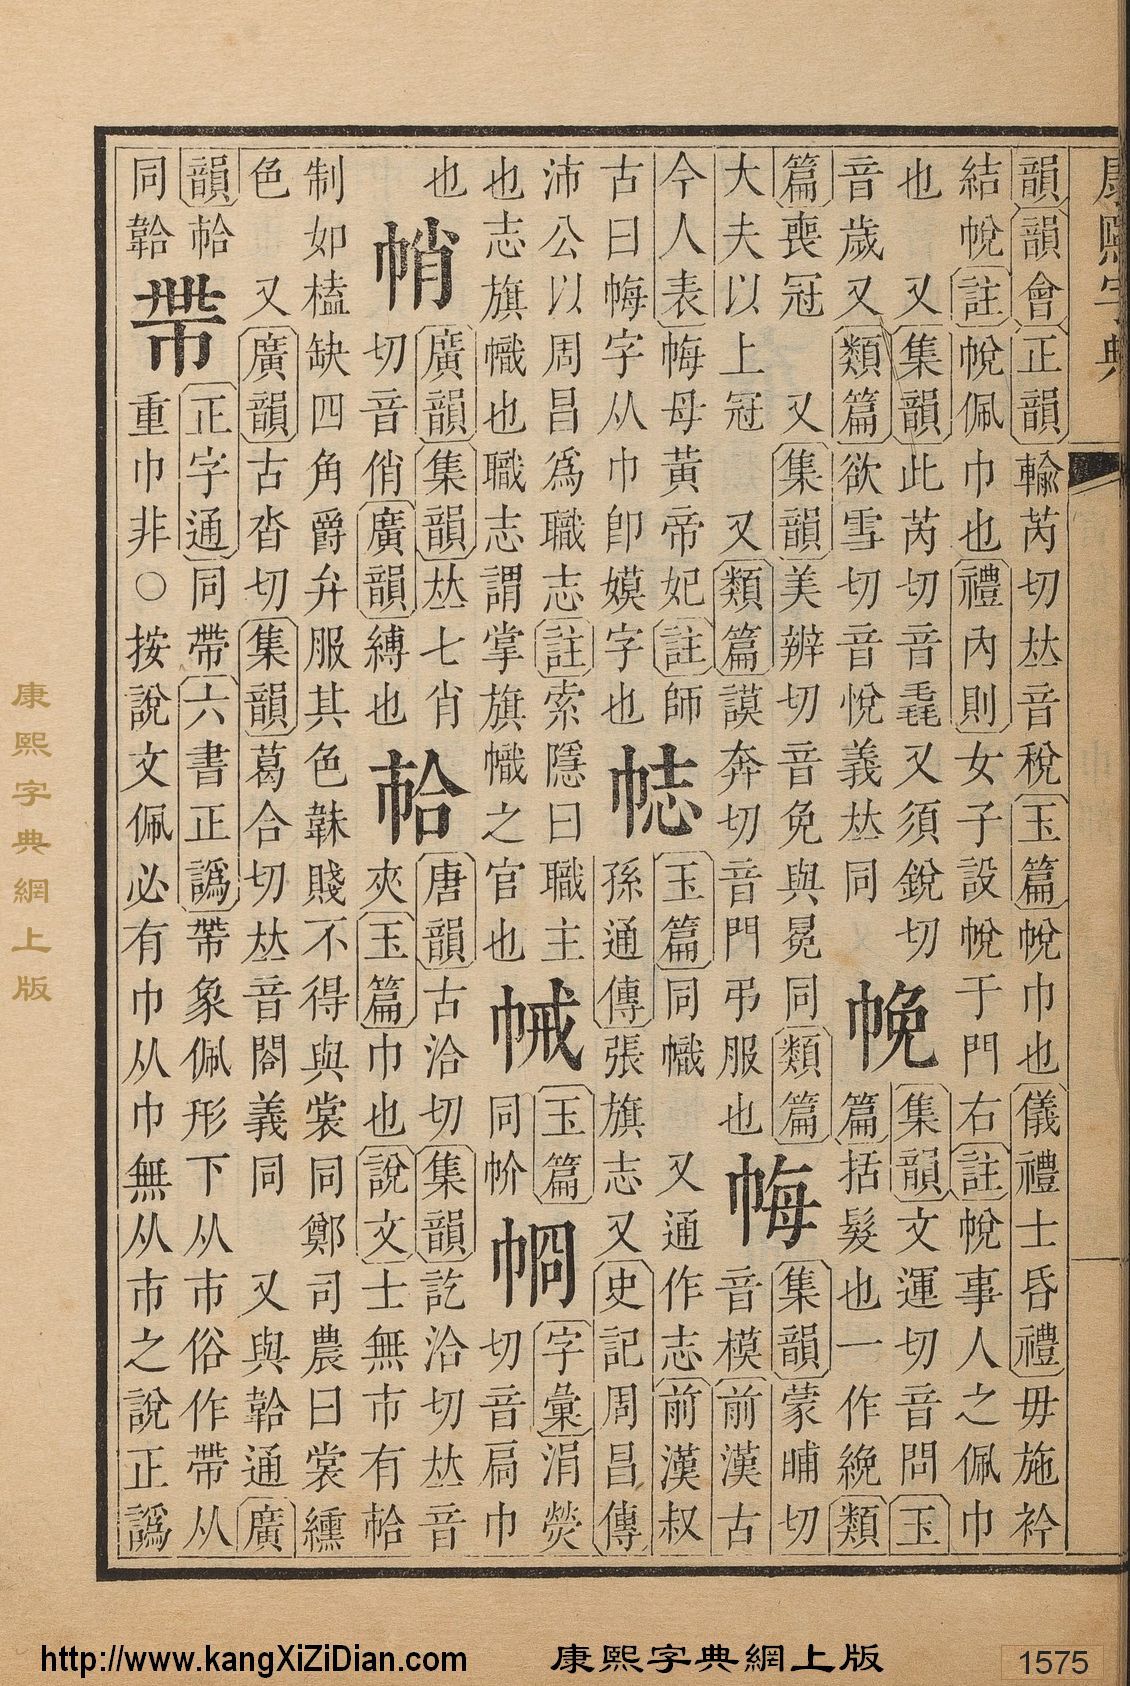 康熙字典
韻韻會正韻輸芮切𠀤音稅玉篇帨巾也儀禮士昏禮毋施衿
結帨註帨佩巾也禮內則女子設帨于門右註帨事人之佩巾
也 又集韻此芮切音毳又須銳切
音歲又類篇欲雪切音悅義𠀤同
帨
集韻文運切音問玉
篇括髮也一作絻類
篇喪冠 又集韻美辨切音免與冕同類篇
大夫以上冠 又類篇謨奔切音門弔服也
帨
集韻蒙晡切
音模前漢古
今人表𢃋母黃帝妃註師
古曰𢃋字从巾卽嫫字也
帨
玉篇同幟 又通作志前漢叔
孫通傳張旗志又史記周昌傳
沛公以周昌爲職志註索隱曰職主
也志旗幟也職志謂掌旗幟之官也
玉篇
同㠹
字彙涓熒
切音扃巾
也
帩
廣韻集韻𠀤七肖
切音俏廣韻縛也
帢
唐韻古洽切集韻訖洽切𠀤音
夾玉篇巾也說文士無市有帢
制如榼缺四角爵弁服其色韎賤不得與裳同鄭司農曰裳纁
色 又廣韻古沓切集韻葛合切𠀤音閤義同 又與韐通廣
韻帢
同韐
帶
正字通同帶六書正譌帶象佩形下从巿俗作帶从
重巾非○按說文佩必有巾从巾無从巿之說正譌
康熙字典網上版
http://www.kangXiZiDian.com 康熙字典網上版 1575